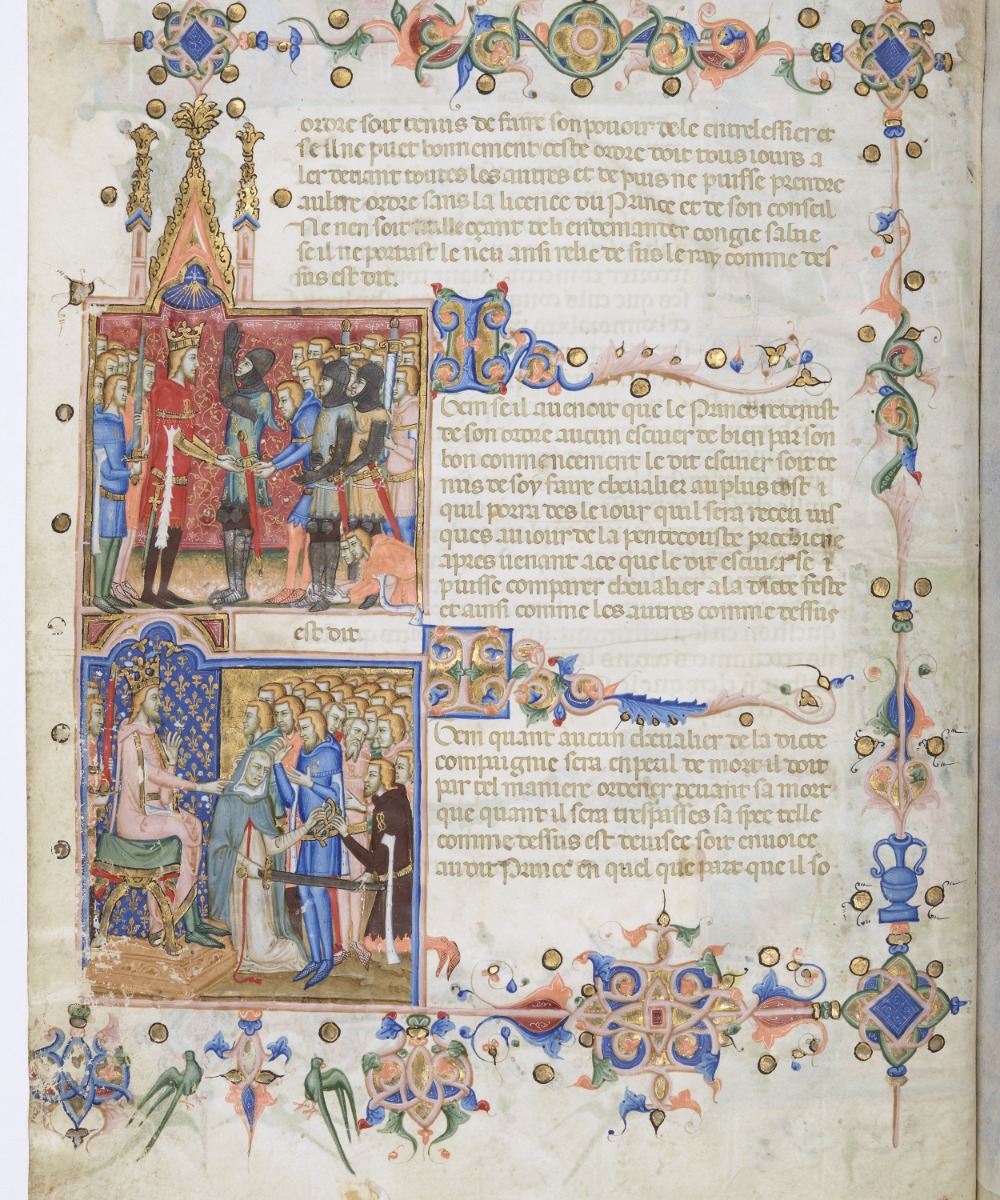 ordre soit tenus de faire son pouoir de le entrelessier et
se il ne puet bonnement ceste ordre doit tous iours a
ler deuant toutes les autres et de puis ne puisse prendre
aultre ordre sans la licence du Prince et de son conseil
Ne nen soit de demander congie salue
se il ne portast le neu ansi relie de sus le ray comme des
sus est dit.
I
Tem se il auenoit que le Prince retenist
de son ordre aucun escuier de bien par son
bon commencement le dit escuier soit te
nus de soy faire cheualier au plus tost
quil porra des le iour quil sera receu ius
ques au iour de la pentecouste prochiene
apres uenant a ce que le dit escuier se
puisse comparer cheualier a la dicte feste
et ainsi comme les autres comme dessus
est dit
I
Tem quant aucun cheualier de la dicte
compaignie sera en peril de mort il doit
par tel maniere ordener deuant sa mort
que quant il sera trespasses sa spee telle
comme dessus est deuisee soit enuoiee
au dit Prince en quel que part que il so